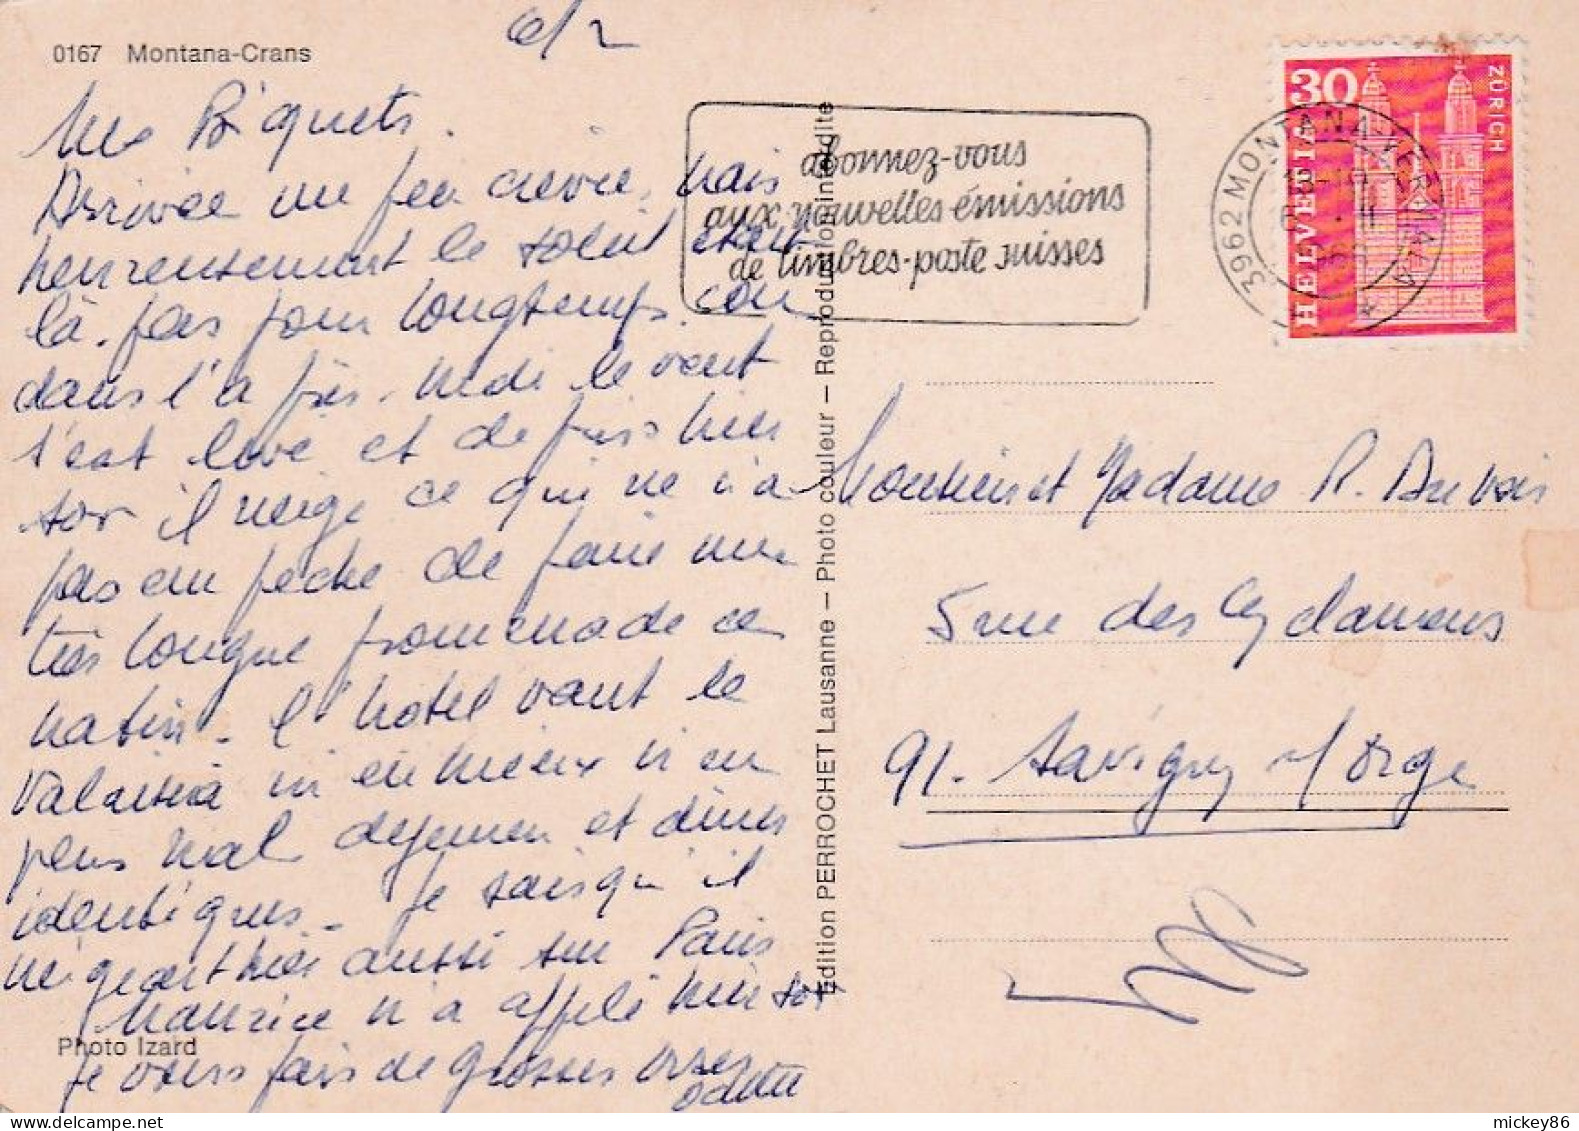 6/2
0167 Montana-Crans
Mes Biquets.
Arrivée un peu crevée, mais
heureusement le soleil était
là. pas pour longtemps car
dans l'après-midi le vent
s'est levé et depuis hier
soir il neige ce qui ne m'a
pas empêché de faire une
très longue promenade ce
matin. L'hotel vaut le
Valaisia ni en mieux ni en
plus mal dejeuner et diners
identiques. Je sais qu'il
neigeait hier aussi sur Paris
Maurice m'a appelé hier soir
Je vous fais de grosses bises
Odette
Photo Izard
Edition PERROCHET Lausanne – Photo couleur – Reproduction interdite
abonnez-vous
aux nouvelles émissions
de timbres-poste suisses
3962 MONTANA-VERMALA
HELVETIA
30
ZÜRICH
Monsieur et Madame R.
5 rue des Cyclamens
91. Savigny s/Orge
mickey86